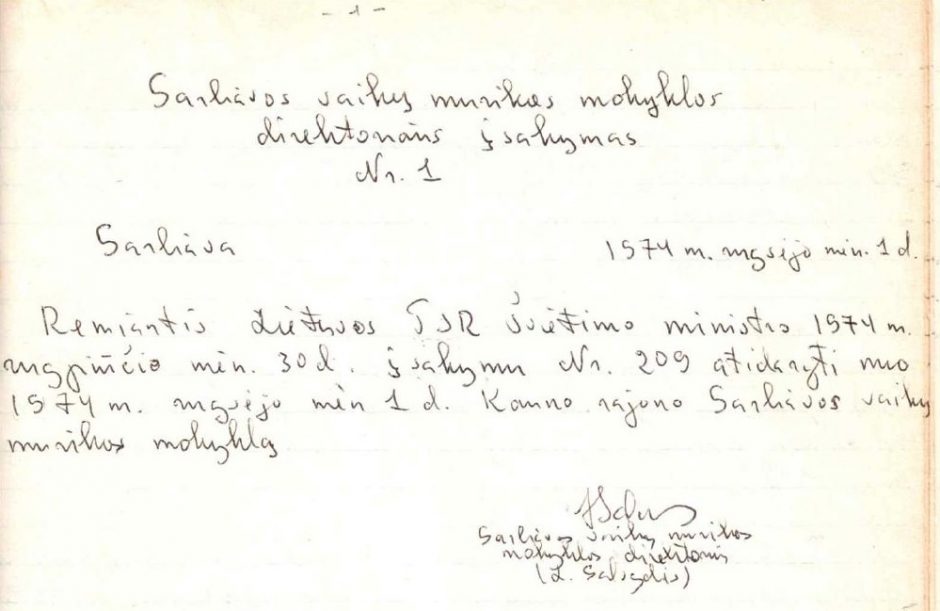 - 1 -
Garliavos vaikų muzikos mokyklos
direktoriaus įsakymas
Nr. 1
Garliava
1974 m. rugsėjo mėn. 1 d.
Remiantis Lietuvos TSR Švietimo ministro 1974 m.
rugpjūčio mėn. 30 d. įsakymu Nr. 209 atidaryti nuo
1974 m. rugsėjo mėn 1 d. Kauno rajono Garliavos vaikų
muzikos mokyklą
Garliavos vaikų muzikos
mokyklos direktorius